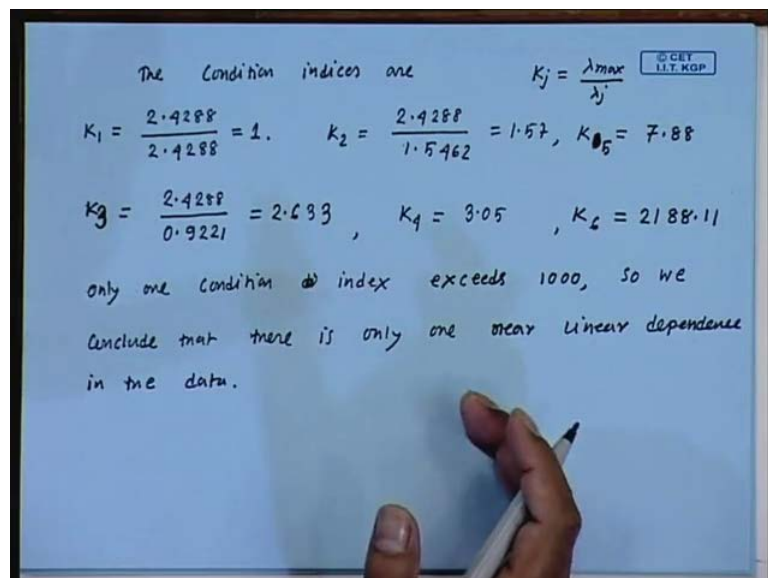 The Condition indices are Kj = λmax / λj
© CET
I.I.T. KGP
K1 = 2.4288 / 2.4288 = 1. K2 = 2.4288 / 1.5462 = 1.57, K5 = 7.88
K3 = 2.4288 / 0.9221 = 2.633, K4 = 3.05, K6 = 2188.11
only one condition index exceeds 1000, so we
conclude that there is only one near linear dependence
in the data.